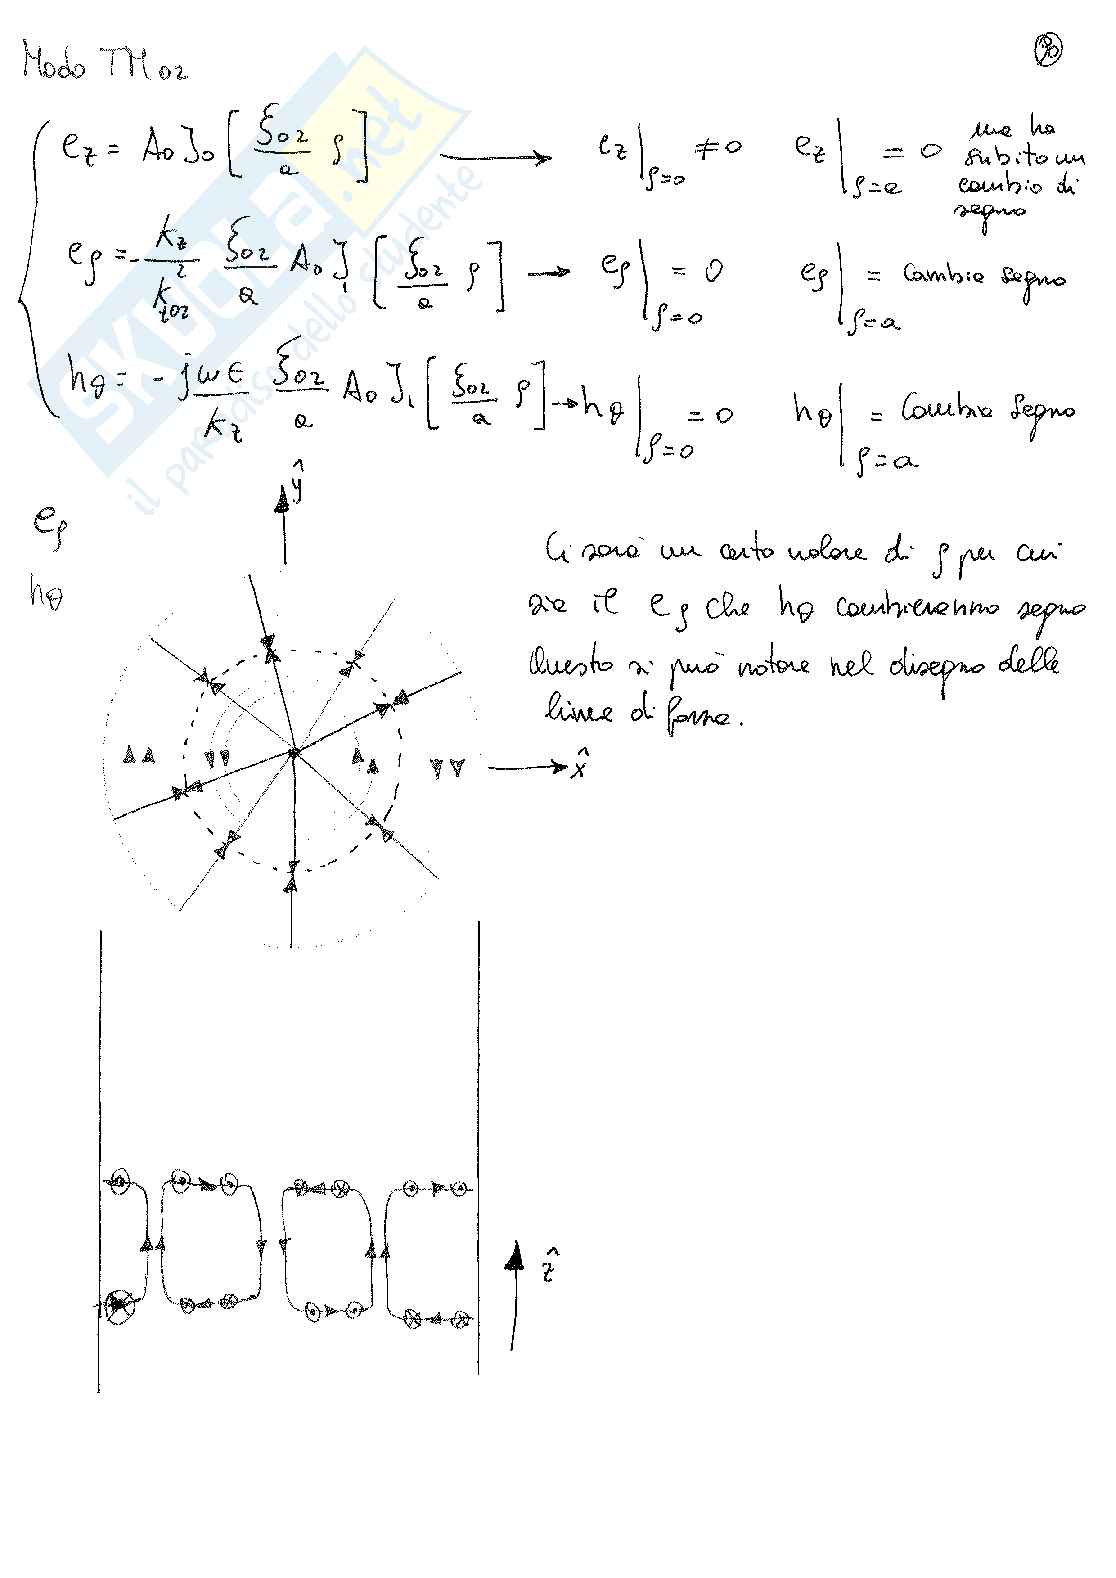 Modo TM02
90
ez = A0 J0 [ ξ02/a ρ ] → ez|ρ=0 ≠ 0 ez|ρ=a = 0 ma ha subito un cambio di segno
eρ = - kz/k²t02 ξ02/a A0 J1 [ ξ02/a ρ ] → eρ|ρ=0 = 0 eρ|ρ=a = Cambia segno
hθ = - jωϵ/kz ξ02/a A0 J1 [ ξ02/a ρ ] → hθ|ρ=0 = 0 hθ|ρ=a = Cambia segno
ŷ
eρ
hθ
Ci sarà un certo valore di ρ per cui
sia il eρ che hθ cambieranno segno
Questo si può notare nel disegno delle
linee di forza.
x̂
ẑ
SKUOLA.net
il paradiso dello studente